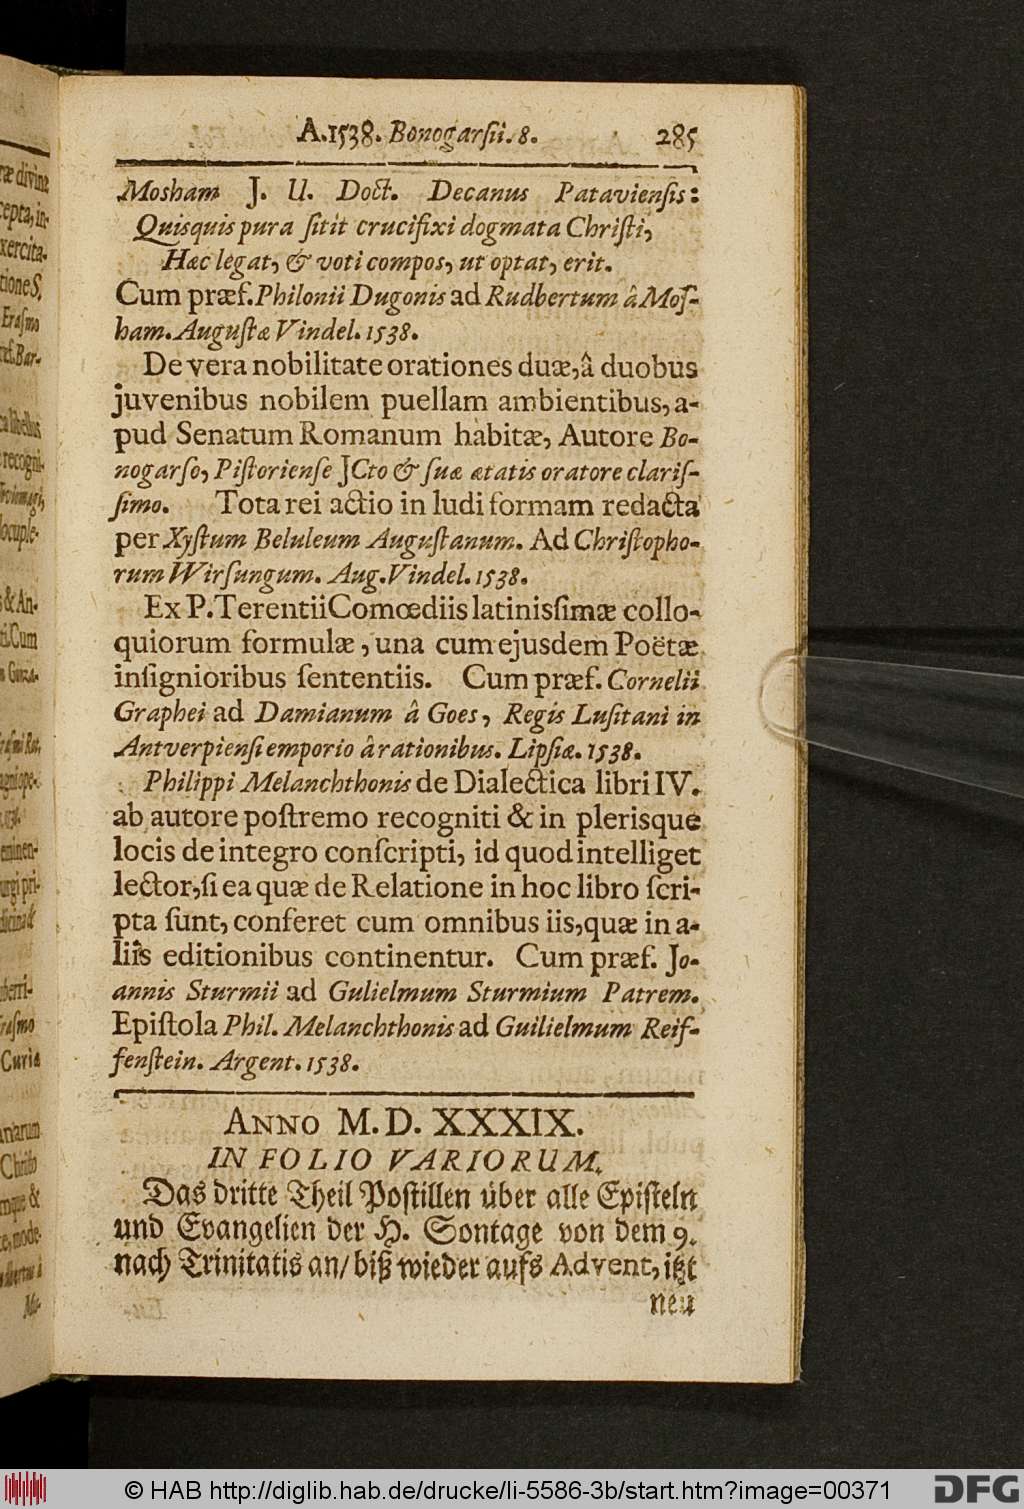 A.1538. Bonogarsii. 8. 285
Mosham J. U. Doct. Decanus Pataviensis:
Quisquis pura sitit crucifixi dogmata Christi,
Hæc legat, & voti compos, ut optat, erit.
Cum præf. Philonii Dugonis ad Rudbertum â Mos-
ham. Augustæ Vindel. 1538.
De vera nobilitate orationes duæ, â duobus
juvenibus nobilem puellam ambientibus, a-
pud Senatum Romanum habitæ, Autore Bo-
nogarso, Pistoriense JCto & suæ ætatis oratore claris-
simo. Tota rei actio in ludi formam redacta
per Xystum Beluleum Augustanum. Ad Christopho-
rum Wirsungum. Aug. Vindel. 1538.
Ex P. Terentii Comœdiis latinissimæ collo-
quiorum formulæ, una cum ejusdem Poëtæ
insignioribus sententiis. Cum præf. Cornelii
Graphei ad Damianum â Goes, Regis Lusitani in
Antverpiensi emporio â rationibus. Lipsiæ. 1538.
Philippi Melanchthonis de Dialectica libri IV.
ab autore postremo recogniti & in plerisque
locis de integro conscripti, id quod intelliget
lector, si ea quæ de Relatione in hoc libro scri-
pta sunt, conferet cum omnibus iis, quæ in a-
liis editionibus continentur. Cum præf. Jo-
annis Sturmii ad Gulielmum Sturmium Patrem.
Epistola Phil. Melanchthonis ad Guilielmum Reif-
fenstein. Argent. 1538.
ANNO M. D. XXXIX.
IN FOLIO VARIORUM.
Das dritte Theil Postillen über alle Episteln
und Evangelien der H. Sontage von dem 9.
nach Trinitatis an/ biß wieder aufs Advent, itzt
neu
© HAB http://diglib.hab.de/drucke/li-5586-3b/start.htm?image=00371
DFG